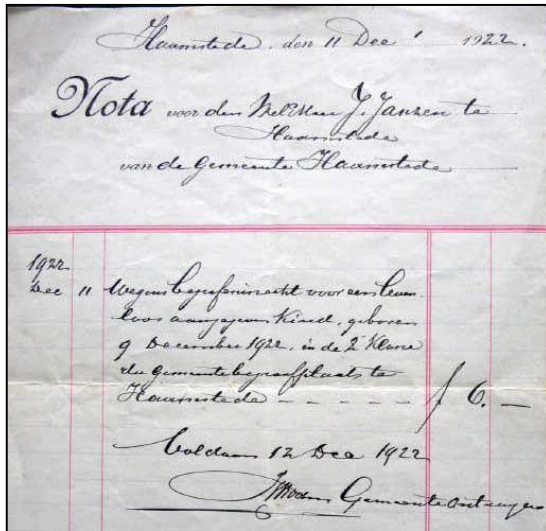 Haamstede, den 11 Dec 1922.
Nota voor den WelEd Heer J. Janzen te
Haamstede
van de Gemeente Haamstede
1922
Dec 11 Wegens begrafenisrecht voor een leven-
loos aangegeven Kind, geboren
9 December 1922, in de 2e Klasse
der gemeentebegraafplaats te
Haamstede - - - - - f 6.-
Voldaan 12 Dec 1922
Gemeenteontvanger